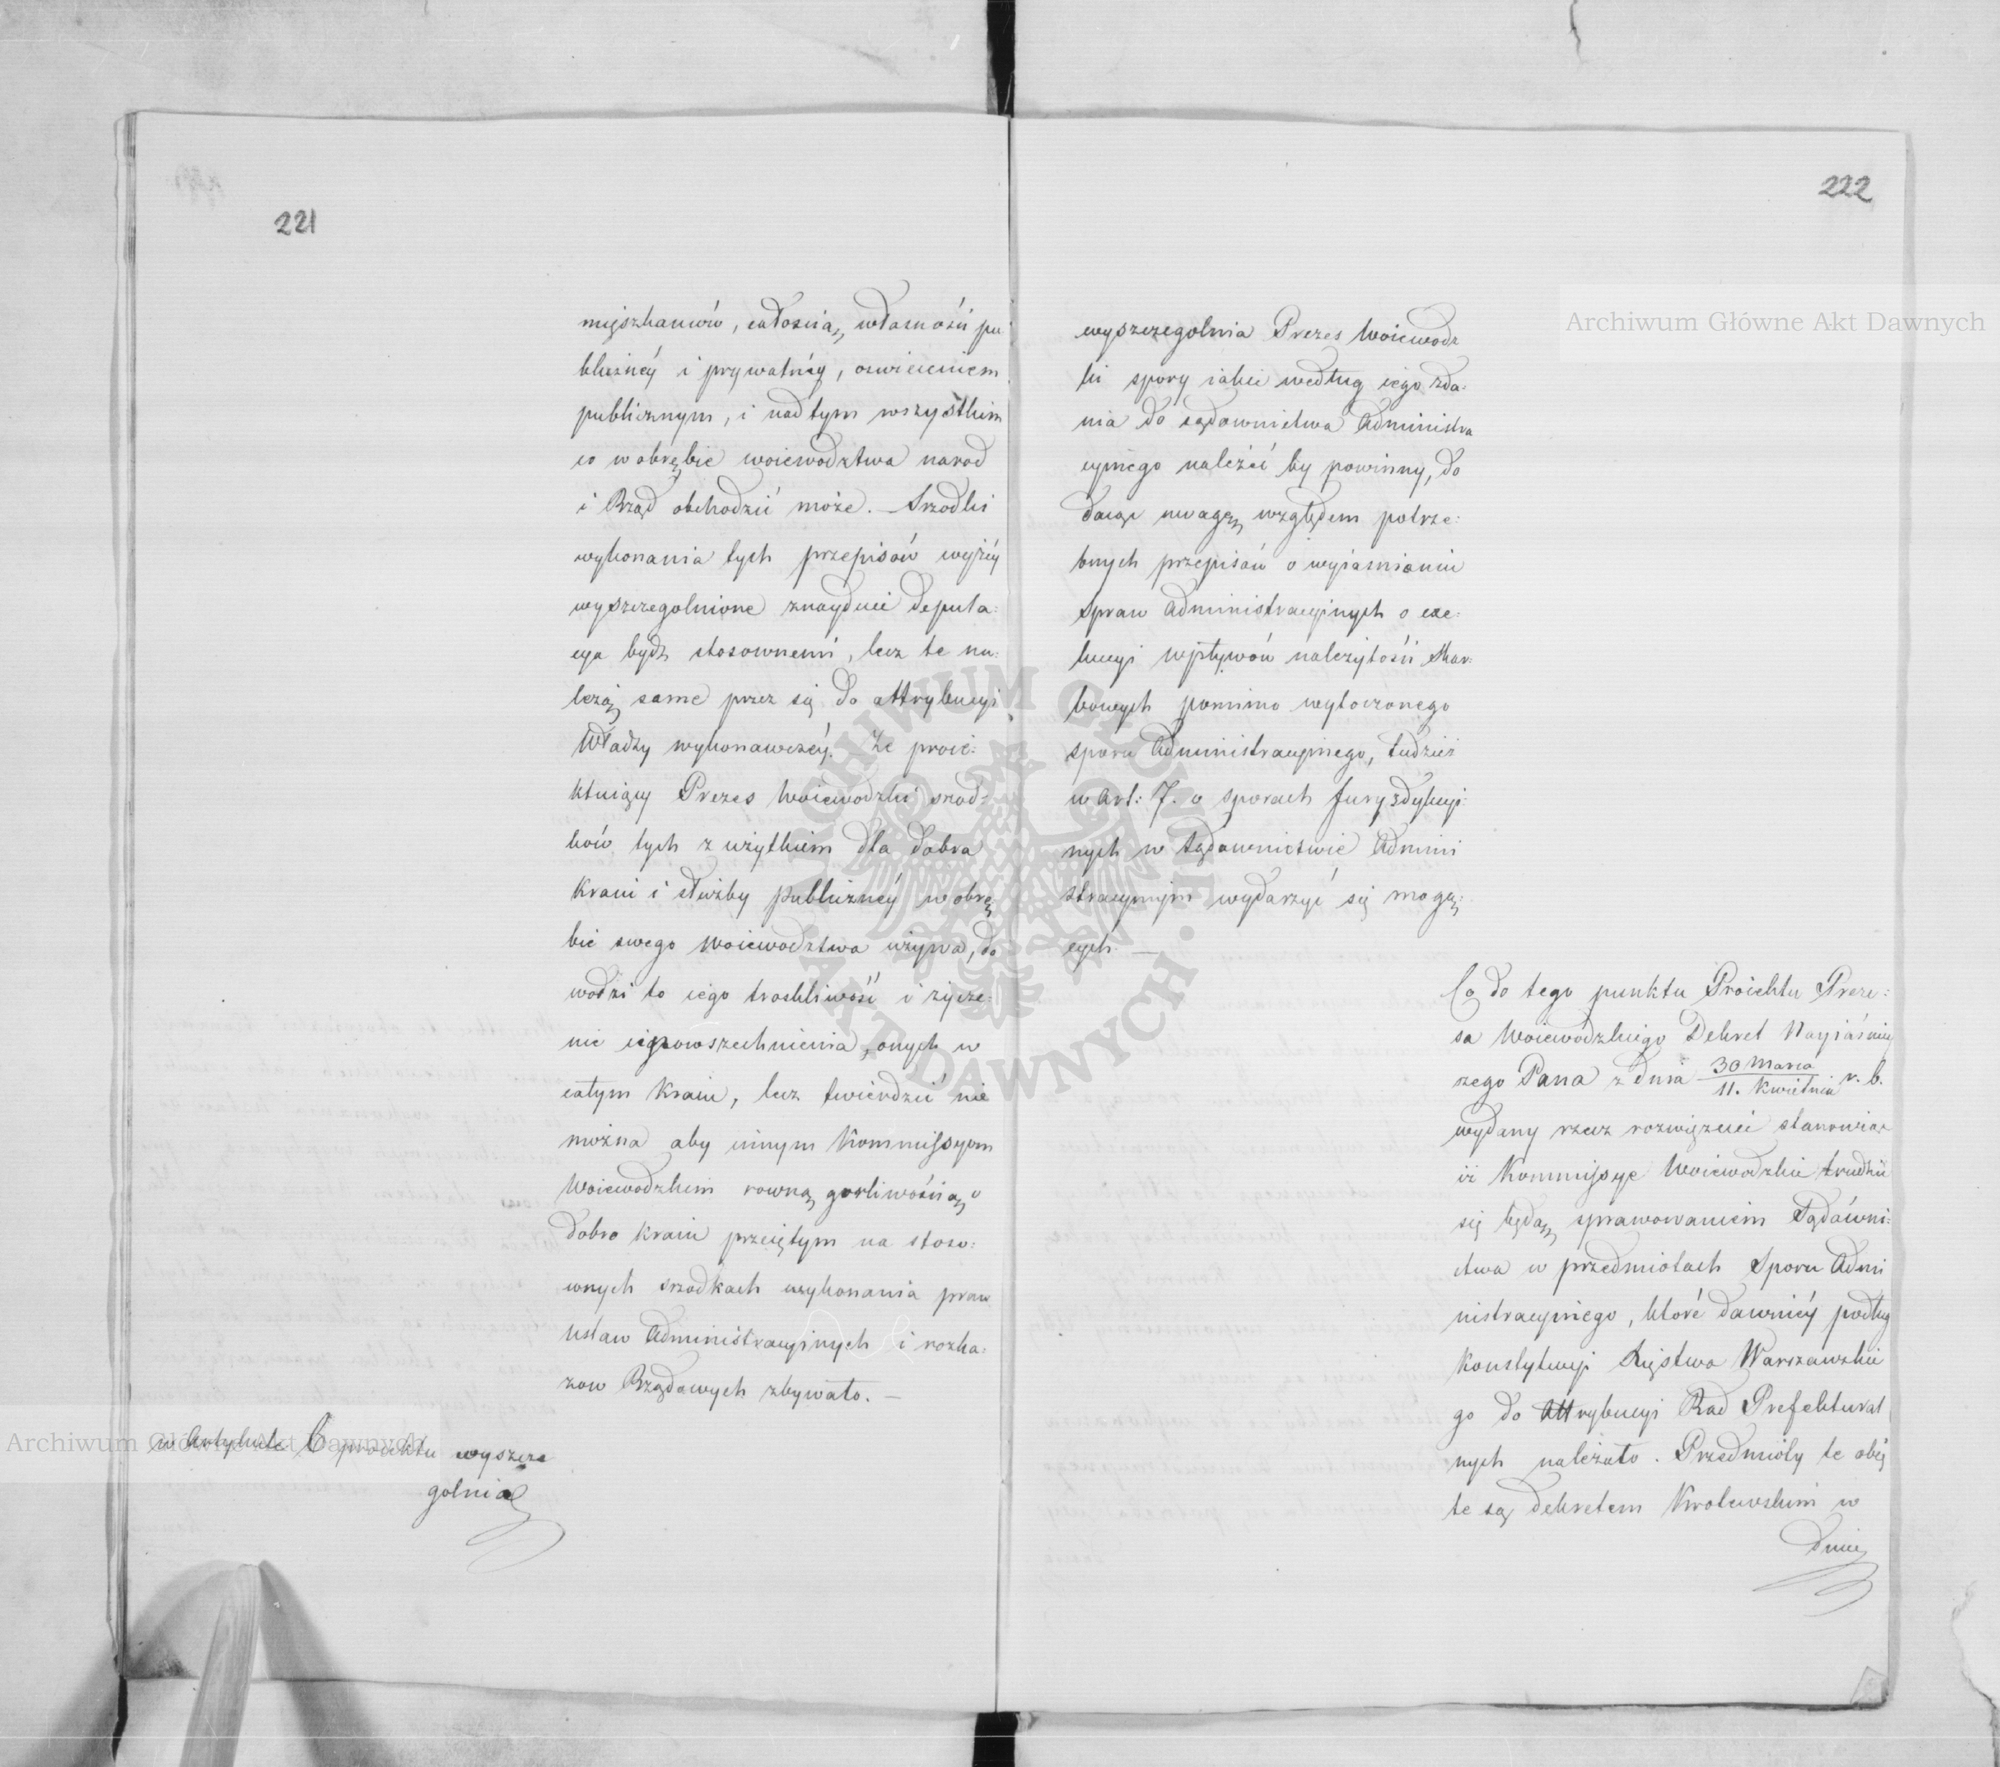 221
mięszkańców, całością, własności pu
bliczney i prywatney, oswieceniem
publicznym, i nad tym wszystkim
co w obrębie woiewodztwa narod
i Rząd obchodzić może. – Srzodki
wykonania tych przepisów wyżey
wyszczegolnione znayduie deputa:
cya bydź stosownemi, lecz te na:
leżą same przez się do attrybucyi
Władzy wykonawczey. Że proie:
ktuiący Prezes Woiewodzki srzod:
ków tych z użytkiem dla dobra
Kraiu i służby publiczney w obrę
bie swego Woiewodztwa używa, do
wodzi to iego troskliwość i życze:
nie upowszechnienia, onych w
całym Kraiu, lecz twierdzić nie
można aby innym Kommissyom
Woiewodzkim rowną gorliwością o
dobro kraiu przeiętym na stoso:
wnych srzodkach wykonania praw
ustaw Administracyinych i rozka:
zow Rządowych zbywało. –
w Artykule 6 proiektu wyszcze
golnia
222
wyszczegolnia Prezes Woiewodz
ki spory iakie według iego zda:
nia do sądownictwa Administra
cyinego należeć by powinny, do
daiąc uwagę względem potrze:
bnych przepisów o wyiasnieniu
spraw Administracyinych o exe:
kucyi wpływów należytości Skar:
bowych pomimo wytoczonego
sporu Administracyinego, tudzież
w Art: 7. o sporach Juryzdykcyi:
nych w Sądownictwie Admini
stracyinym wydarzyć się mogą:
cych. –
Co do tego punktu Proiektu Preze:
sa Woiewodzkiego Dekret Nayiaśniey
szego Pana z dnia 30 Marca / 11. Kwietnia r. b.
wydany rzecz rozwięzuie stanowiąc
iż Kommissye Woiewodzkie trudnić
się będą sprawowaniem Sądówni:
ctwa w przedmiotach Sporu Admi
nistracyinego, które dawniey podług
Konstytucyi Xięstwa Warszawskie
go do Attrybucyi Rad Prefektural
nych należało. Przedmioty te obię
te są dekretem Krolewskim w
dniu
Archiwum Główne Akt Dawnych
Archiwum Główne Akt Dawnych
ARCHIWUM GŁÓWNE · AKT DAWNYCH ·